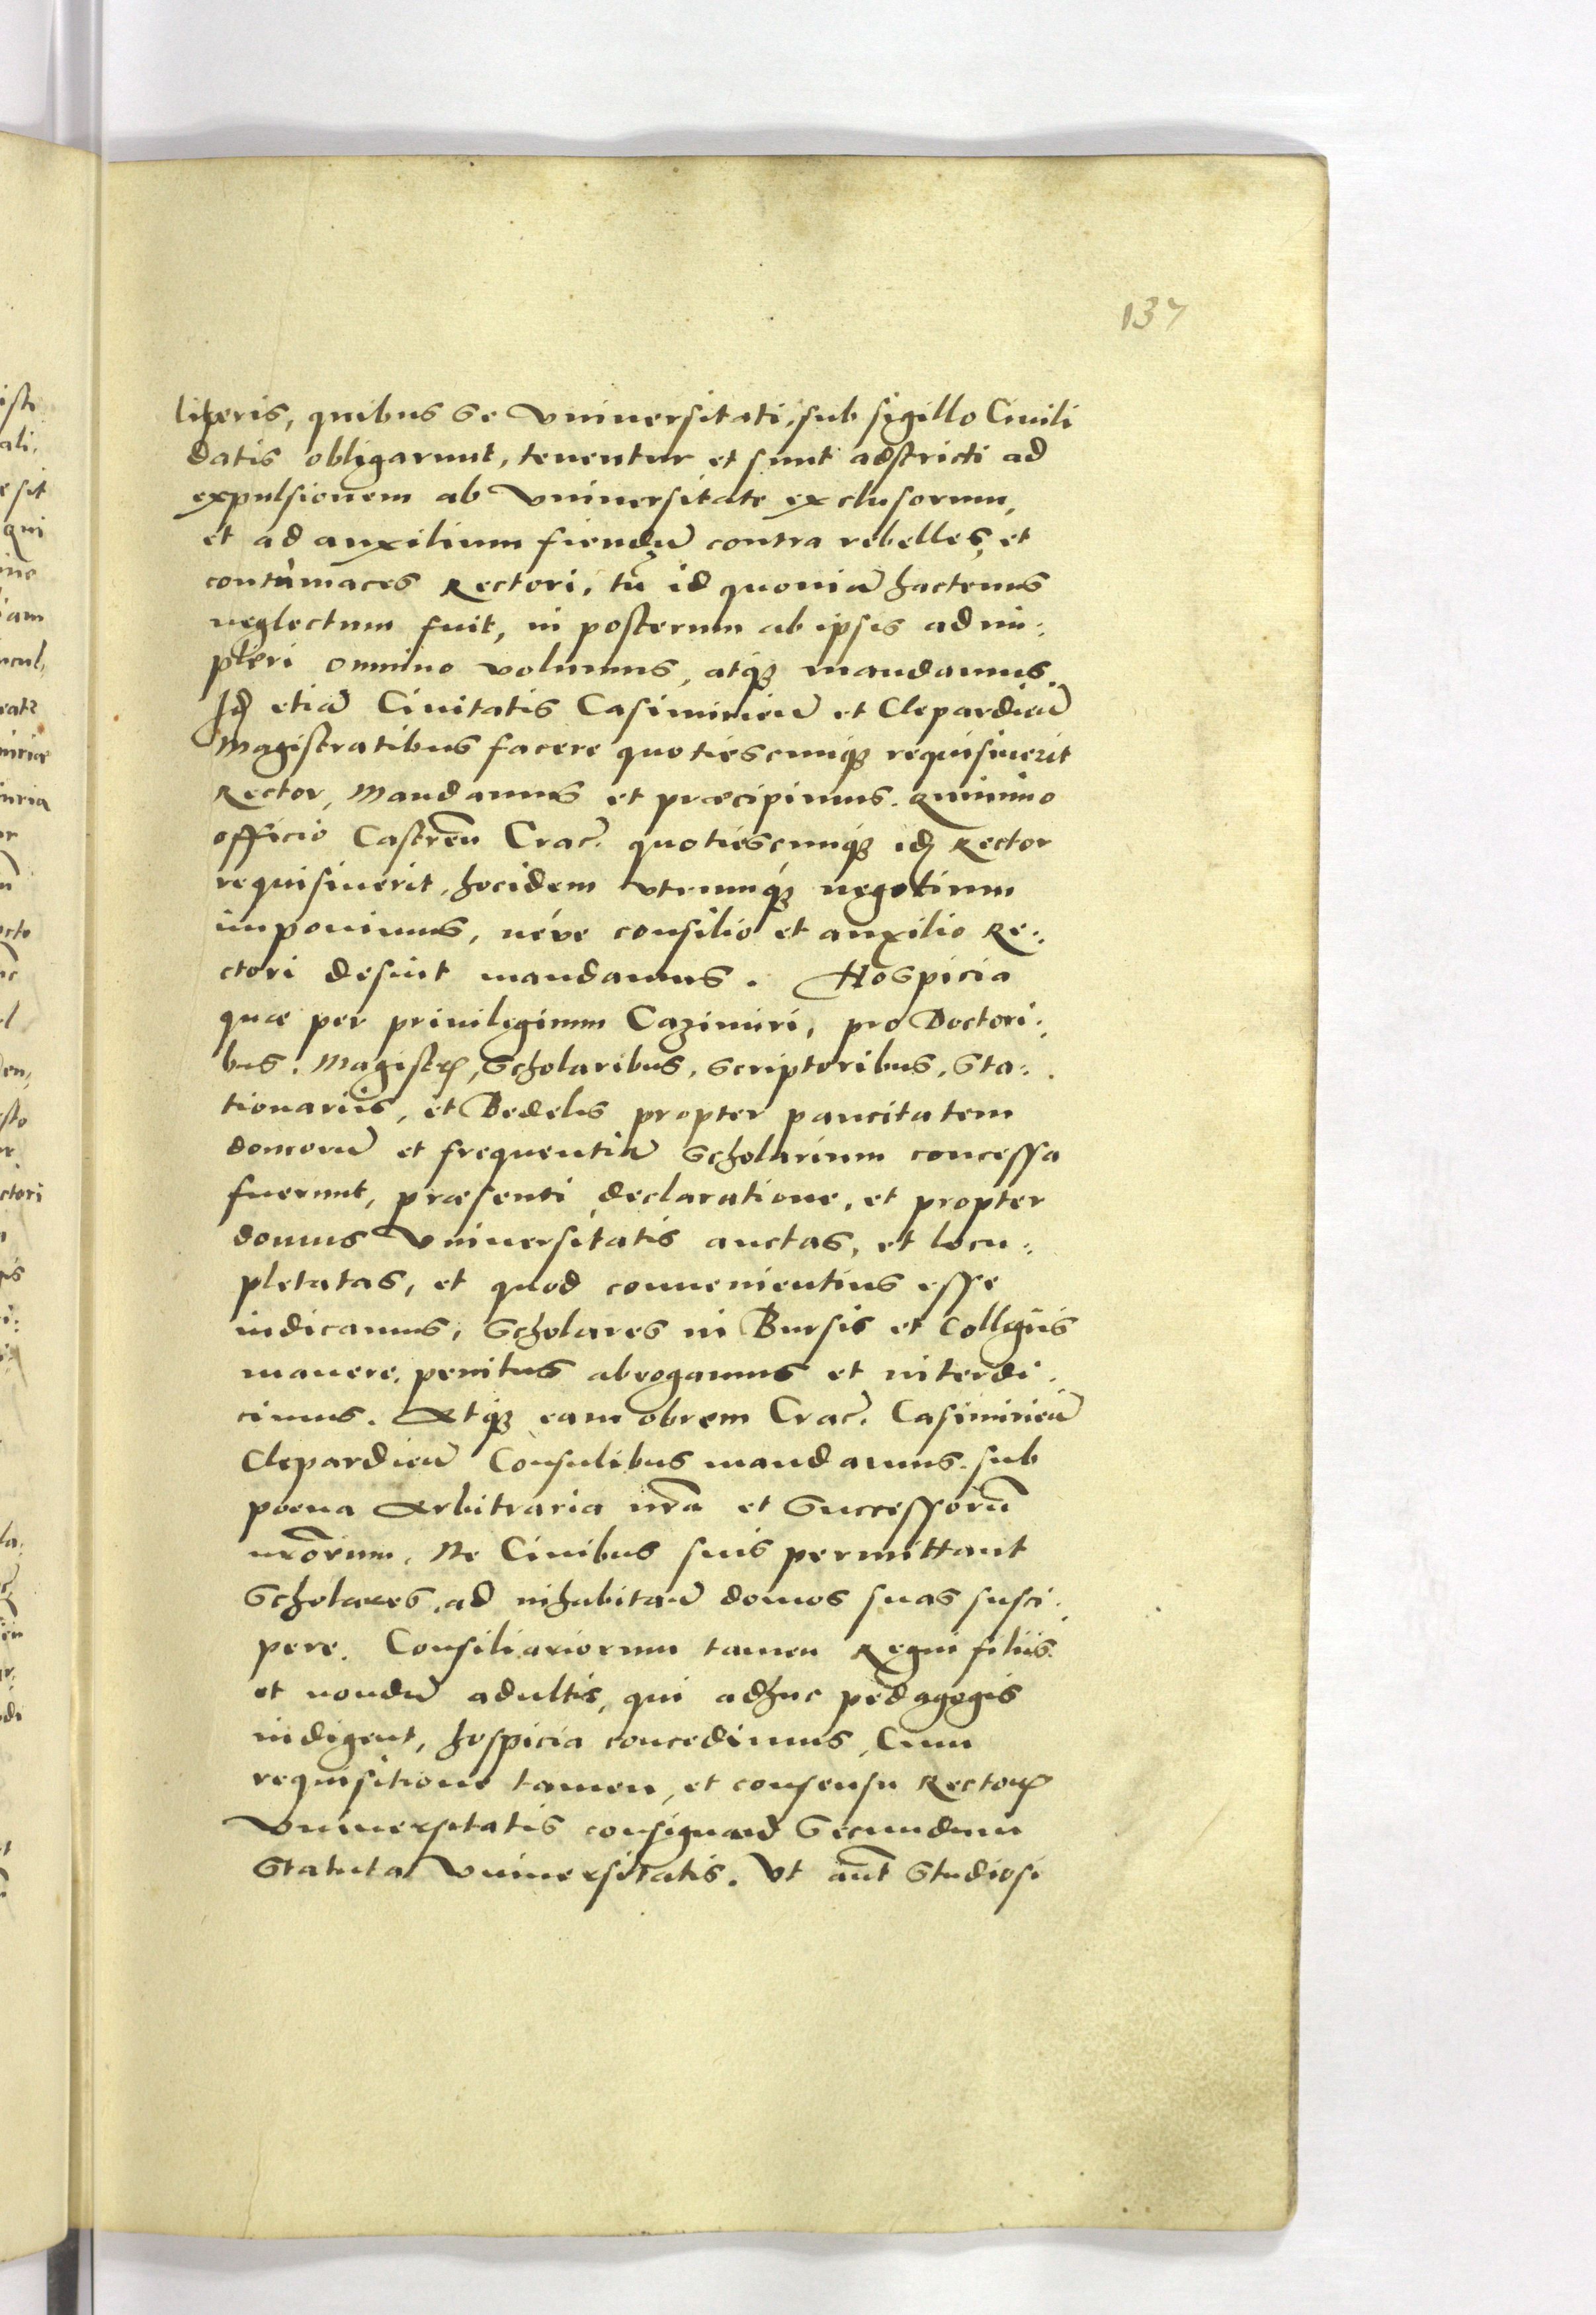 137
literis, quibus se Vniuersitati, sub sigillo Ciuili
datis obligarunt, tenentur et sunt adstricti ad
expulsionem ab Vniuersitate exclusorum,
et ad auxilium fiendũ contra rebelles, et
contumaces Rectori, tñ id quoniã hactenus
neglectum fuit, in posterum ab ipsis adim:
pleri omnino volumus, atq₃ mandamus.
Id etiã Ciuitatis Casimirień et Clepardień
Magistratibus facere quotiescunq₃ requisiuerit
Rector, Mandamus et præcipimus. Quinimo
officio Castreñ Crac̃. quotiescunq₃ id Rector
requisiuerit, hocidem vtrumq₃ negotium
imponimus, néve consilio et auxilio Re:
ctori desint mandamus. Hospicia
quæ per priuilegium Cazimiri, pro Doctori:
bus. Magistrꝭ, Scholaribus, Scriptoribus, Sta:
tionariis, et Bedelis propter paucitatem
domorũ et frequentiã Scholarium concessa
fuerunt, præsenti declaratione, et propter
domus Vniuersitatis auctas, et locu:
pletatas, et quod conuenientius esse
iudicamus, Scholares in Bursis et Collegiis
manere, penitus abrogamus et interdi:
cimus. Atq₃ eam obrem Crac̃. Casimirień
Clepardień Consulibus mandamus. sub
poena Arbitraria nr̃a et Successorũ
nr̃orum, Ne Ciuibus suis permittant
Scholares, ad inhabitañ domos suas susci:
pere. Consiliariorum tamen Regni filiis
et nondũ adultis, qui adhuc pedagogis
indigent, hospicia concedimus, Cum
requisitione tamen, et consensu Rectorꝭ
Vniuersitatis consignañd Secundum
Statuta Vniuersitatis. Vt aũt Studiosi